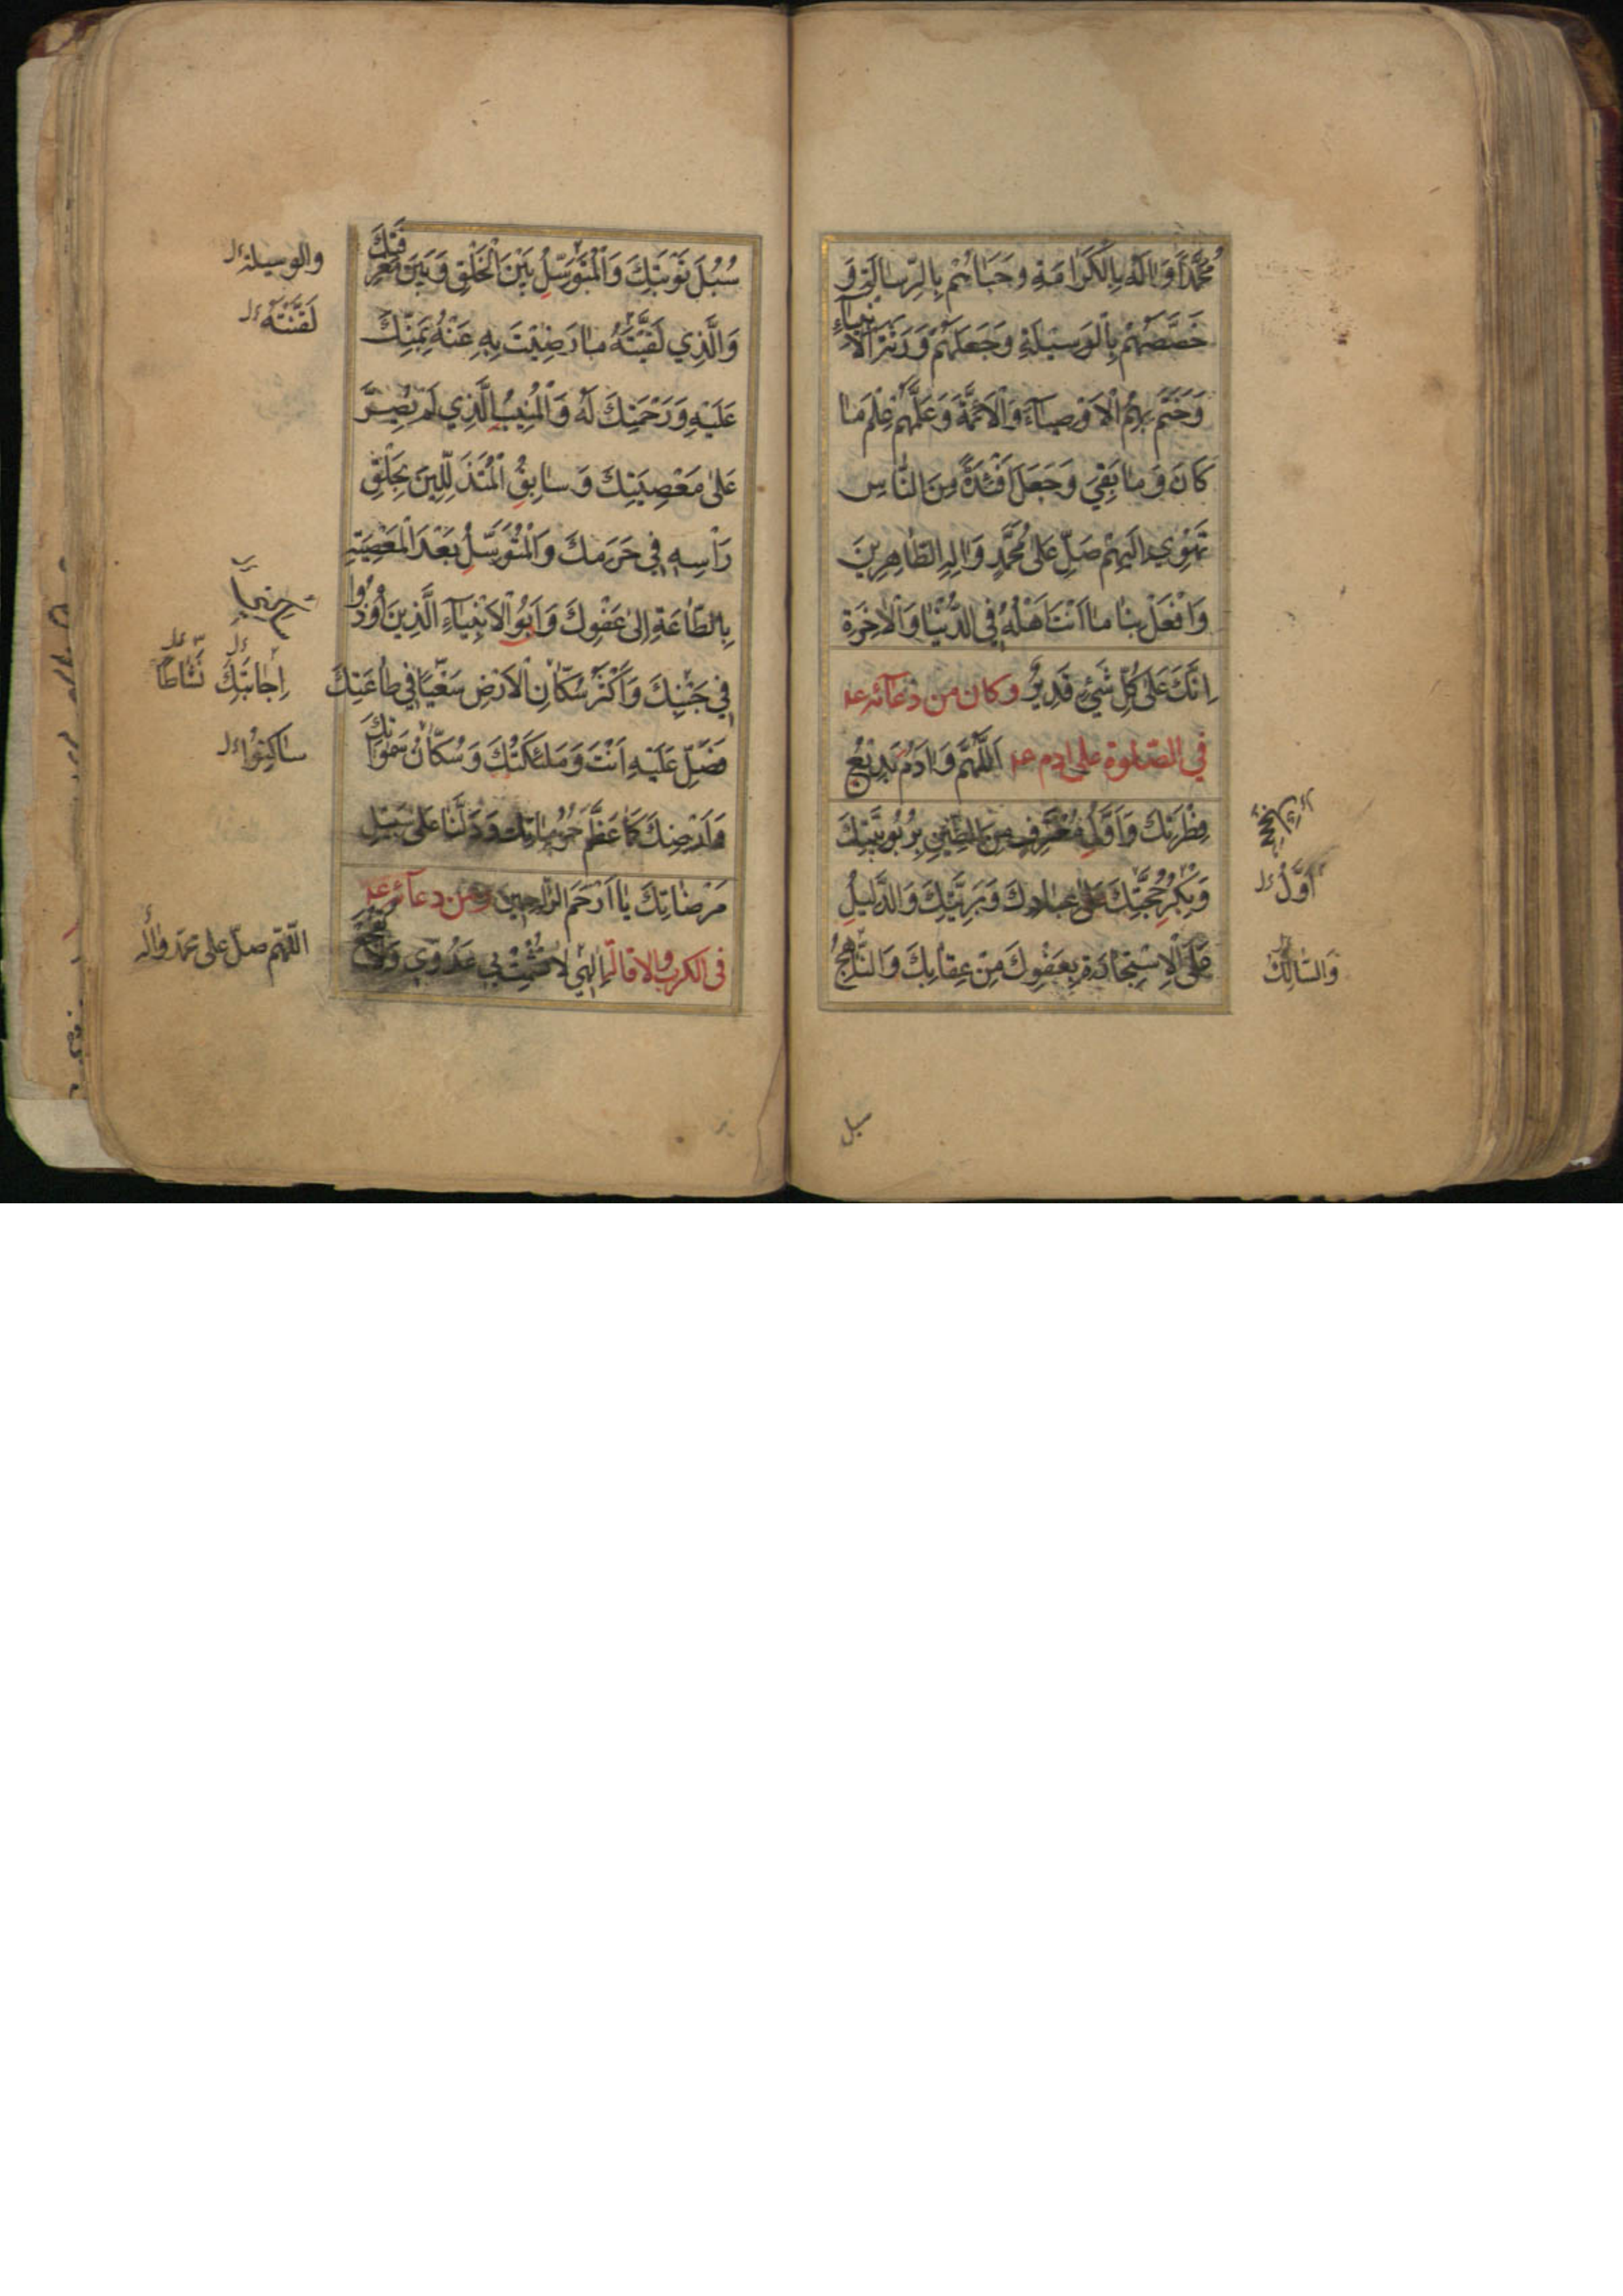 مُحَمَّدًا وَاٰلَهُ بِالْكَرَامَةِ وَحَبَاهُمْ بِالرِّسَالَةِ وَ
خَصَّصَهُمْ بِالْوَسيلَةِ وَجَعَلَهُمْ وَرَثَةَ الْاَنْبِيَاءِ
وَخَتَمَ بِهِمُ الْاَوْصِيَآءَ وَالْاَئِمَّةَ وَعَلَّمَهُمْ عِلْمَ مَا
كَانَ وَمَا بَقِيَ وَجَعَلَ اَفْئِدَةً مِنَ النَّاسِ
تَهْوِي اِلَيْهِمْ صَلِّ عَلٰى مُحَمَّدٍ وَاٰلِهِ الطَّاهِرِينَ
وَافْعَلْ بِنَا مَا اَنْتَ اَهْلُهُ فِي الدُّنْيَا وَالْاٰخِرَةِ
اِنَّكَ عَلٰى كُلِّ شَيْءٍ قَدِيرٌ وكان من دعآئه ع
في الصلوة على ادم ع اَللّٰهُمَّ وَاٰدَمُ بَدِيعُ
فِطْرَتِكَ وَاَوَّلُ مُعْتَرِفٍ مِنَ الطِّينِ بِرُبُوبِيَّتِكَ
وَبِكْرُ حُجَّتِكَ عَلٰى عِبَادِكَ وَبَرِيَّتِكَ وَالدَّلِيلُ
عَلَى الْاِسْتِجَارَةِ بِعَفْوِكَ مِنْ عِقَابِكَ وَالنَّاهِجُ
اَوَّلُ
وَالسَّالِكُ
سبل
سُبُلَ تَوْبَتِكَ وَالْمُتَوَسِّلُ بَيْنَ الْخَلْقِ وَبَيْنَ مَعْرِفَتِكَ
وَالَّذِي لَقَّيْتَهُ مَا رَضِيتَ بِهِ عَنْهُ بِمَنِّكَ
عَلَيْهِ وَرَحْمَتِكَ لَهُ وَالْمُنِيبُ الَّذِي لَمْ يُصِرَّ
عَلٰى مَعْصِيَتِكَ وَسَابِقُ الْمُتَذَلِّلِينَ بِحَلْقِ
رَاْسِهِ فِي حَرَمِكَ وَالْمُتَوَسِّلُ بَعْدَ الْمَعْصِيَةِ
بِالطَّاعَةِ اِلٰى عَفْوِكَ وَاَبُو الْاَنْبِيَآءِ الَّذِينَ اُوذُوا
فِي جَنْبِكَ وَاَكْثَرُ سُكَّانِ الْاَرْضِ سَعْيًا فِي طَاعَتِكَ
فَصَلِّ عَلَيْهِ اَنْتَ وَمَلٰئِكَتُكَ وَسُكَّانُ سَمٰوَاتِكَ
وَاَرْضِكَ كَمَا عَظَّمَ حُرُمَاتِكَ وَدَلَّنَا عَلٰى سَبِيلِ
مَرْضَاتِكَ يَا اَرْحَمَ الرَّاحِمِينَ ومن دعآئه ع
في الكرب والاقالة اِلٰهِي لَا تُشْمِتْ بِي عَدُوِّي وَلَا تَفْجَعْ
والوسيلة
لَقَّنْتَهُ
اِجَابَتِكَ نَشَاطًا
سَاكِنُوا
اللّهم صلّ على محمّد وآله